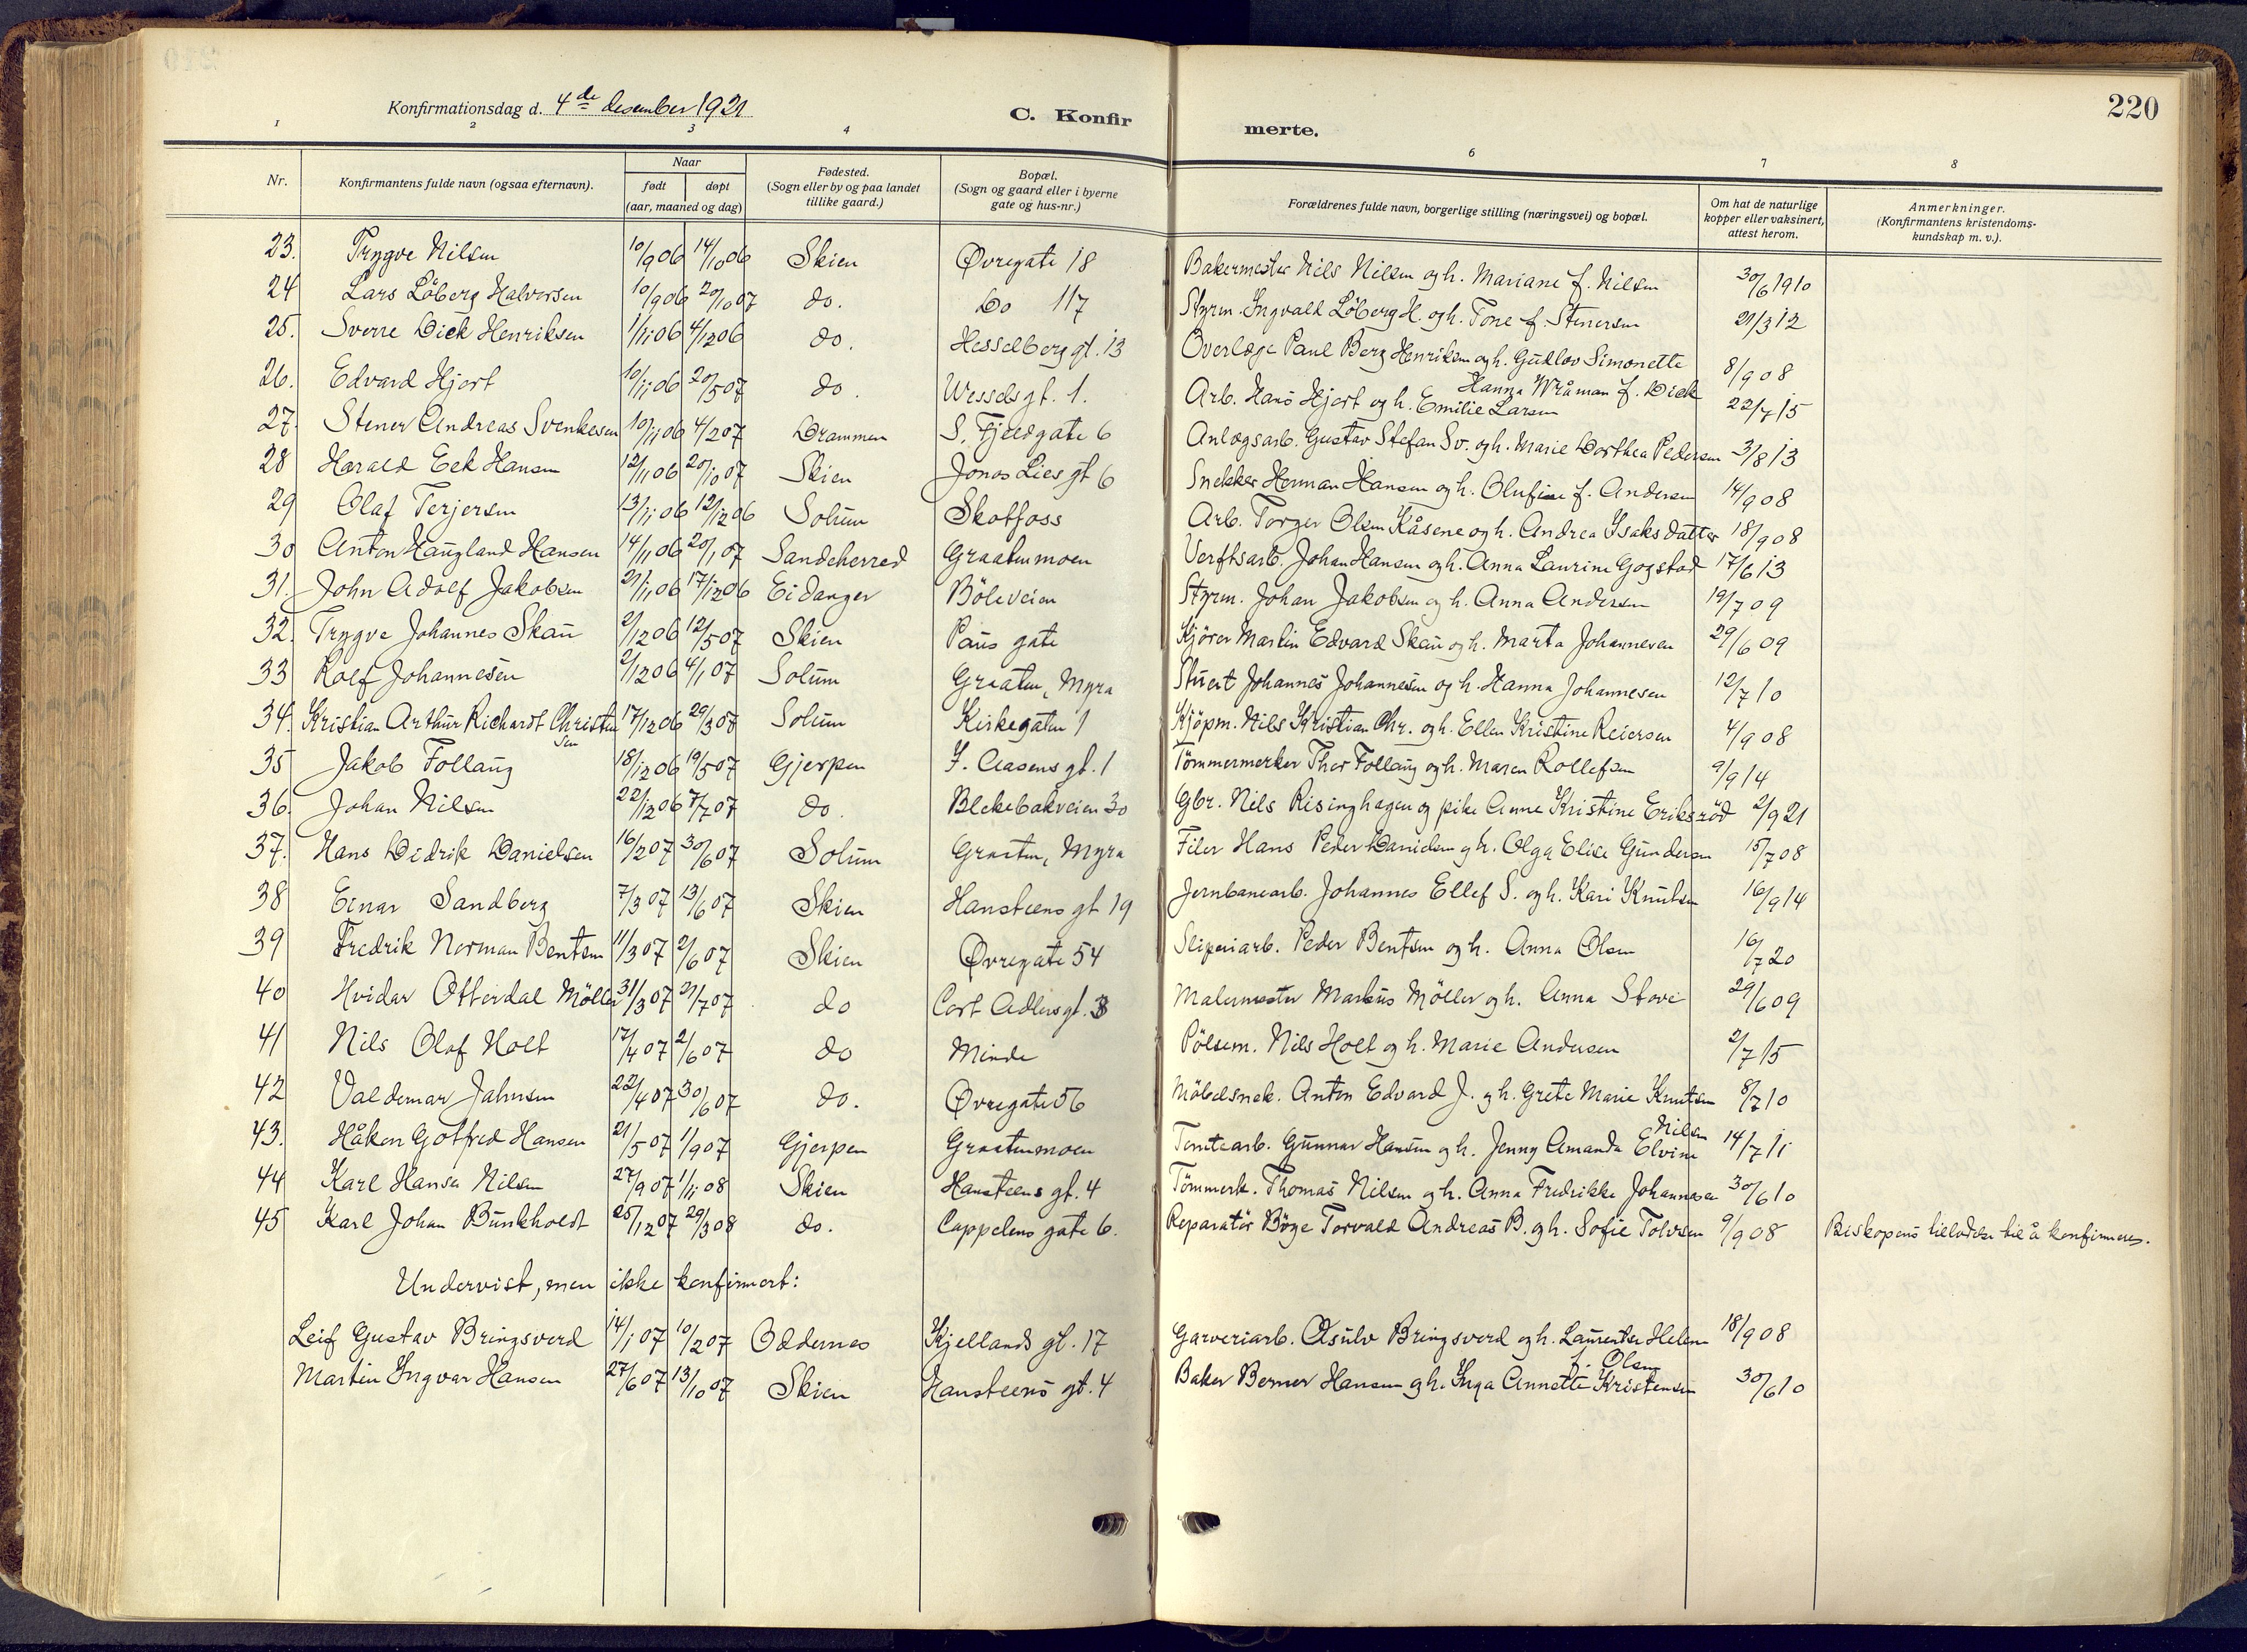 220
Konfirmationsdag d. 4de desember 1921
C. Konfirmerte.
1 2 3 4 6 7 8
Nr.
Konfirmantens fulde navn (ogsaa efternavn).
Naar
født døpt
(aar, maaned og dag)
Fødested.
(Sogn eller by og paa landet
tillike gaard.)
Bopæl.
(Sogn og gaard eller i byerne
gate og hus-nr.)
Forældrenes fulde navn, borgerlige stilling (næringsvei) og bopæl.
Om hat de naturlige
kopper eller vaksinert,
attest herom.
Anmerkninger.
(Konfirmantens kristendoms-
kundskap m. v.).
23. Trygve Nilsen 10/9 06 14/10 06 Skien Øvregate 18 Bakermester Nils Nilsen og h. Mariane f. Nilsen 30/6 1910
24 Lars Löberg Halvorsen 10/9 06 20/10 07 do. Do 117 Styrm. Ingvald Löberg H. og h. Tone f. Stenersen 21/3 12
25. Sverre Dick Henriksen 1/11 06 4/12 06 do. Hesselberg gt. 13 Overlæge Paul Berg Henriksen og h. Gudlov Simonette
Hanna Wråman f. Dick 8/9 08
26. Edvard Hjort 10/11 06 20/5 07 do. Wessels gt. 1. Arb. Hans Hjort og h. Emilie Larsen 22/7 15
27. Stener Andreas Svenkesen 10/11 06 4/2 07 Drammen S. Fjeldgate 6 Anlægsarb. Gustav Stefan Sv. og h. Marie Dorthea Pedersen 3/8 13
28 Harald Eek Hansen 12/11 06 20/10 07 Skien Jonas Lies gt 6 Snekker Herman Hansen og h. Olufine f. Andersen 14/9 08
29 Olaf Terjersen 13/11 06 12/12 06 Solum Skotfoss Arb. Torger Olsen Kåsene og h. Andrea Isaksdatter 18/9 08
30 Anton Haugland Hansen 14/11 06 20/1 07 Sandeherred Graatenmoen Verftsarb. Johan Hansen og h. Anna Laurine Gogstad 17/6 13
31. John Adolf Jakobsen 21/11 06 17/12 06 Eidanger Böleveien Styrm. Johan Jakobsen og h. Anna Andersen 19/7 09
32. Trygve Johannes Skau 2/12 06 12/5 07 Skien Paus gate Kjörer Martin Edvard Skau og h. Marta Johannesen 29/6 09
33 Rolf Johannesen 2/12 06 4/1 07 Solum Graaten, Myra Stuert Johannes Johannesen og h. Hanna Johannesen 12/7 10
34. Kristian Arthur Richardt Christen
sen 17/12 06 29/3 08 Solum Kirkegaten 1 Kjöpm. Nils Kristian Chr. og h. Ellen Kristine Reiersen 4/9 08
35 Jakob Follaug 18/12 06 19/5 07 Gjerpen I. Aasens gt. 1 Tömmermerker Thor Follaug og h. Maren Rollefsen 9/9 14
36. Johan Nilsen 22/12 06 7/7 07 do. Blekebakveien 30 Gbr. Nils Risinghagen og pike Anne Kristine Eriksröd 2/9 21
37. Hans Didrik Danielsen 16/2 07 30/6 07 Solum Graaten, Myra Filer Hans Peder Danielsen og h. Olga Elise Gundersen 15/7 08
38 Einar Sandberg 7/3 07 13/6 07 Skien Hansteens gt 19 Jernbanearb. Johannes Ellef S. og h. Kari Knutsen 16/9 14
39 Fredrik Norman Bentsen 11/3 07 2/6 07 Skien Øvregate 54 Sliperiarb. Peder Bentsen og h. Anna Olsen 16/7 20
40 Hvidar Otterdal Möller 31/3 07 21/7 07 do Cort Adlersgt. 3 Malermester Markus Möller og h. Anna Stavi 29/6 09
41 Nils Olaf Holt 17/4 07 2/6 07 do Minde Pölsem. Nils Holt og h. Marie Andersen 2/7 15
42 Valdemar Jahnsen 22/4 07 30/6 07 do. Øvregate 56 Möbelsnek. Anton Edvard J. og h. Grete Marie Knutsen 8/7 10
43. Håkon Gotfred Hansen 21/5 07 1/9 07 Gjerpen Graatenmoen Tomtearb. Gunnar Hansen og h. Jenny Amanda Elvine
Nilsen 14/7 11
44 Karl Hansa Nilsen 27/9 07 1/11 08 Skien Hansteens gt. 4 Tömmerk. Thomas Nilsen og h. Anna Fredrikke Johannesen 30/6 10
45 Karl Johan Bunkholdt 25/12 07 29/3 08 do. Cappelens gate 6. Reparatör Böge Torvald Andreas B. og h. Sofie Tolvsen 9/9 08 Biskopens tilladelse til å konfirmeres.
Undervist, men ikke konfirmert:
Leif Gustav Bringsverd 14/1 07 10/2 07 Oddernes Kjellands gt. 17 Garveriarb. Asulv Bringsverd og h. Laurentse Helene
f. Olsen 18/9 08
Martin Ingvar Hansen 27/6 07 13/10 07 Skien Hansteens gt. 4 Baker Berner Hansen og h. Inga Annette Kristensen 30/6 10